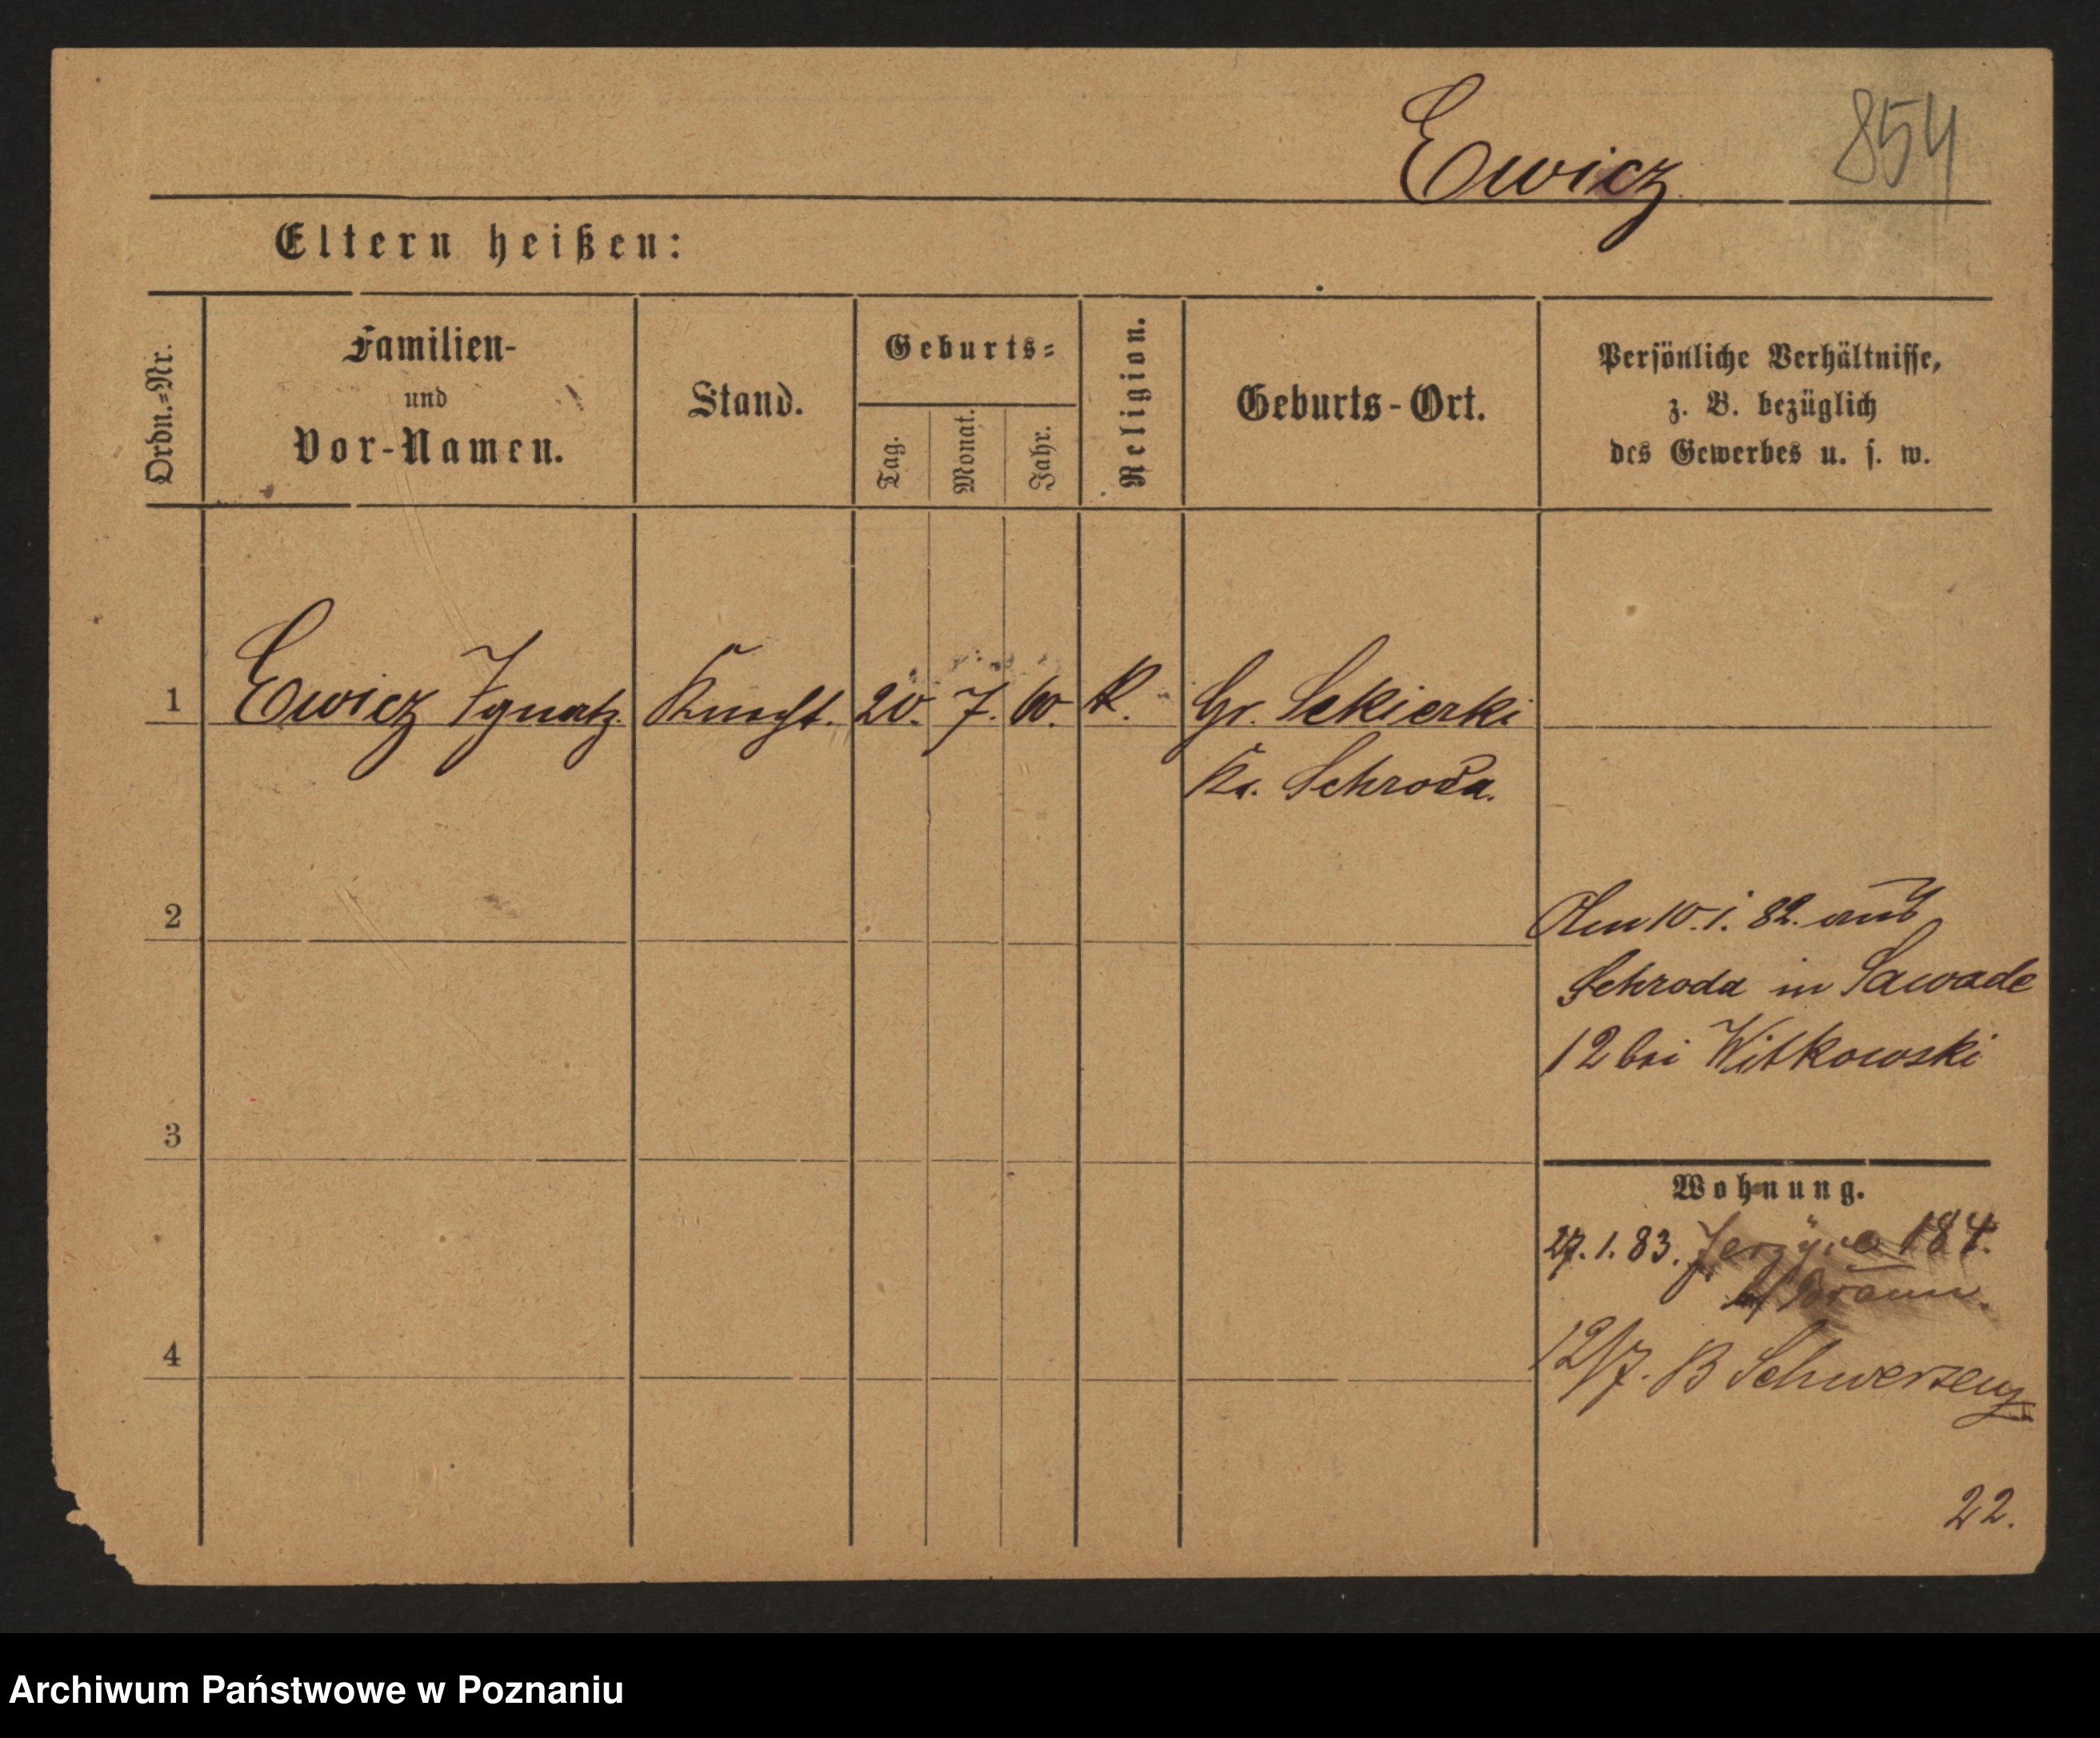 Ewicz
854
Eltern heißen:
Ordn.=Nr.
Familien-
und
Vor-Namen.
Stand.
Geburts=
Tag.
Monat.
Jahr.
Religion.
Geburts-Ort.
Persönliche Verhältnisse,
z. B. bezüglich
des Gewerbes u. s. w.
1 Ewicz Ignatz. Knecht. 20. 7. 60. K. Gr. Sekierki
Kr. Schroda.
2
Am 10. 1. 82. aus
Schroda in Sawade
12 bei Witkowski
3
Wohnung.
27. 1. 83. Jerzyce 184.
b/ Braun.
4
12/7. B Schwersenz
22.
Archiwum Państwowe w Poznaniu